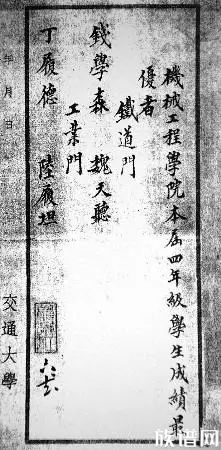 機械工程學院本屆四年級學生成績最
優者
鐵道門
錢學森 魏天聽
工業門
丁履德 陸履坦
年 月 日
交通大學
族谱网